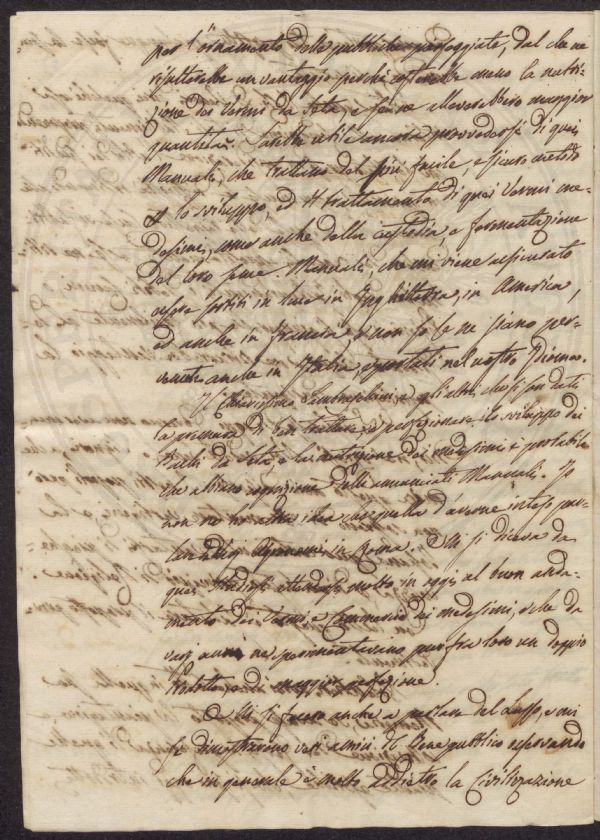 per l'ornamento delle pubbliche passeggiate, dal che ne
risulterebbe un vantaggio perchè costerebbe meno la nutri-
zione dei Vermi da Seta, e se ne alleverebbero maggior
quantità. Sarebbe utile ancora provvedersi di quei
Manuali, che trattano del più facile, e sicuro metodo
lo sviluppo, ed il trattamento di quei Vermi me-
desimi, come anche della custodia, e fermentazione
del loro seme. Manuali, che mi viene assicurato
essere sortiti in luce in Inghilterra, in America,
ed anche in Francia, e non so se ne siano per-
venuti anche in Italia, e portati nel nostro Idioma.
Il Chiarissimo e gli altri, che si son dati
la premura di ben trattare, e perfezionare lo sviluppo dei
Bachi da Seta, e la nutrizione dei medesimi è probabile
che abbiano cognizione delle enunciati Manuali. Io
non ne ho altra idea che quella d'averne inteso par-
lare dagli Agronomi in Roma. Mi si diceva da
quei che si attende molto in oggi al buon anda-
mento dei Vermi, e Commercio dei medesimi, e che da
varj anni ne sperimentavano pur fra loro un doppio
prodotto, e di maggior perfezione.
Mi si fecero anche a parlare del Lusso, e mi
si dimostravano veri amici del Bene pubblico osservando
che in generale è molto addietro la Civilizzazione